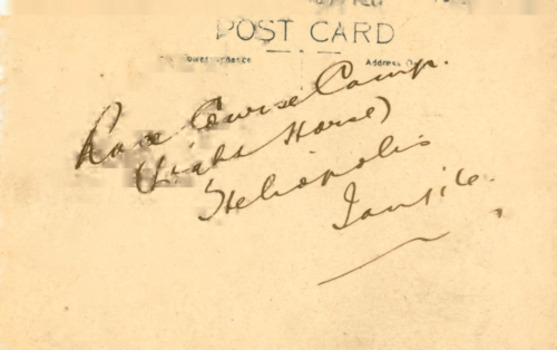 POST CARD
Correspondence Address
Race Course Camp.
(Light Horse)
Heliopolis
Jan/16.